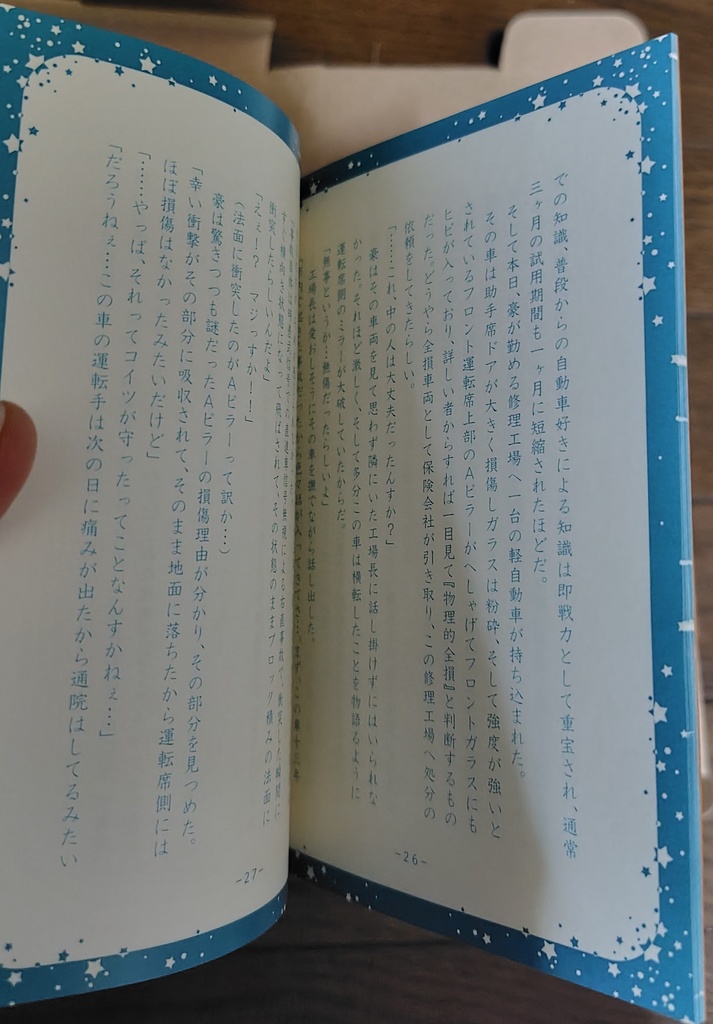 での知識、普段からの自動車好きによる知識は即戦力として重宝され、通常
三ヶ月の試用期間も一ヶ月に短縮されたほどだ。
そして本日、豪が勤める修理工場へ一台の軽自動車が持ち込まれた。
その車は助手席ドアが大きく損傷しガラスは粉砕、そして強度が強いと
されているフロント運転席上部のAピラーがへしゃげてフロントガラスにも
ヒビが入っており、詳しい者からすれば一目見て『物理的全損』と判断するもの
だった。どうやら全損車両として保険会社が引き取り、この修理工場へ処分の
依頼をしてきたらしい。
「……これ、中の人は大丈夫だったんすか？」
豪はその車両を見て思わず隣にいた工場長に話し掛けずにはいられな
かった。それほど激しく、そして多分この車は横転したことを物語るように
運転席側のミラーが大破していたからだ。
「無事というか…無傷だったらしいよ」
工場長は愛おしそうにその車を撫でながら話し出した。
-26-
すぐ横向き状態になって飛ばされて、その状態のままブロック積みの法面に
衝突したらしいんだよ」
「えぇ！？　マジっすか！！」
(法面に衝突したのがAピラーって訳か…)
豪は驚きつつも謎だったAピラーの損傷理由が分かり、その部分を見つめた。
「幸い衝撃がその部分に吸収されて、そのまま地面に落ちたから運転席側には
ほぼ損傷はなかったみたいだけど」
「……やっぱ、それってコイツが守ったってことなんすかねぇ…」
「だろうねぇ…この車の運転手は次の日に痛みが出たから通院はしてるみたい
-27-